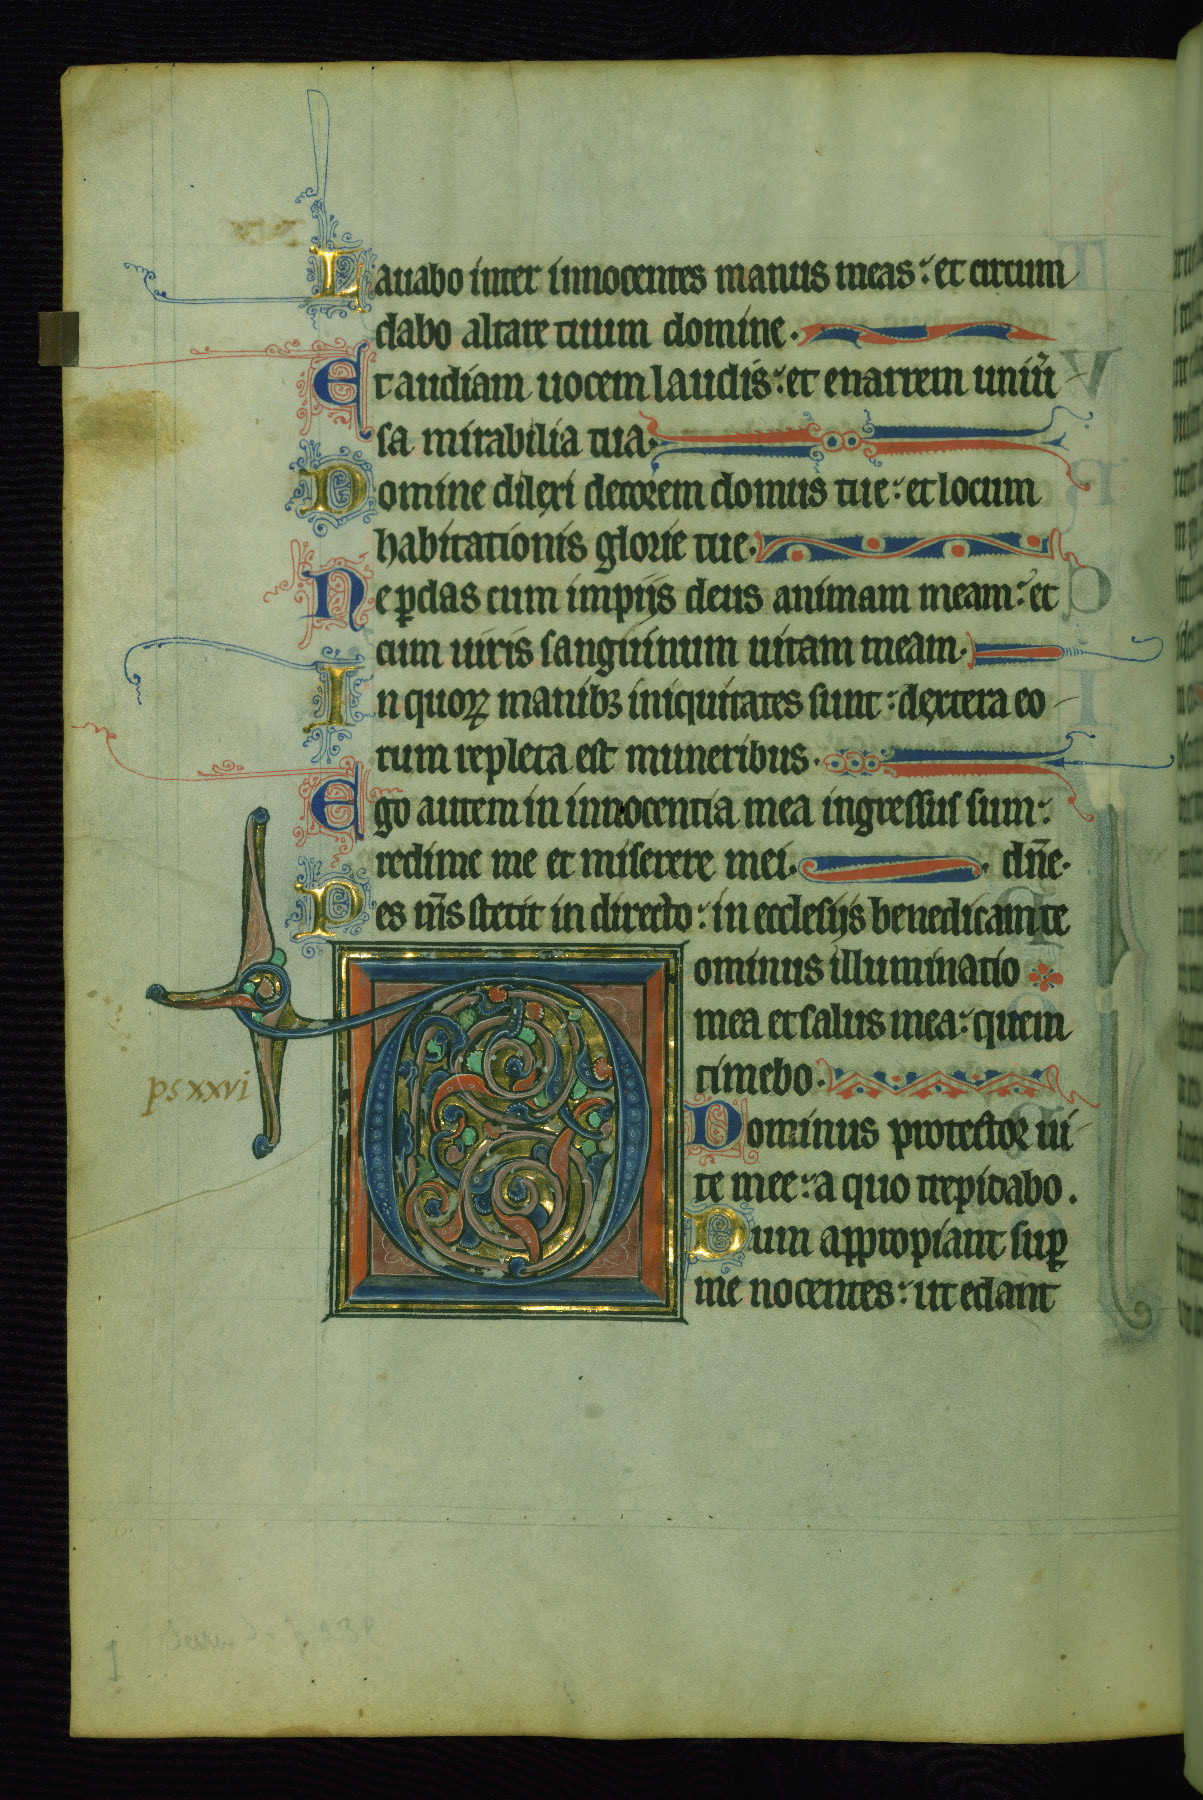 Lauabo inter innocentes manus meas: et circum
dabo altare tuum domine.
Et audiam uocem laudis: et enarrem uniũ
sa mirabilia tua.
Domine dilexi decorem domus tue: et locum
habitationis glorie tue.
Ne ꝑdas cum impijs deus animam meam: et
cum uiris sanguinum uitam meam.
In quoꝝ manibꝫ iniquitates sunt: dextera eo
rum repleta est muneribus.
Ego autem in innocentia mea ingressus sum:
redime me et miserere mei. dñe.
Pes m̃s stetit in directo: in ecclesijs benedicam te
Dominus illuminatio
mea et salus mea: quem
timebo.
ps xxvi
Dominus protector ui
te mee: a quo trepidabo.
Dum appropiant suꝑ
me nocentes: ut edant